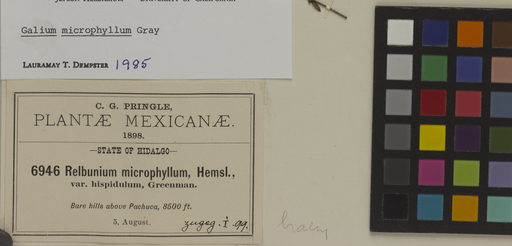 Galium microphyllum Gray
LAURAMAY T. DEMPSTER 1985
C. G. PRINGLE,
PLANTÆ MEXICANÆ.
1898.
—STATE OF HIDALGO—
6946 Relbunium microphyllum, Hemsl.,
var. hispidulum, Greenman.
Bare hills above Pachuca, 8500 ft.
5, August. zugeg. I. 99.